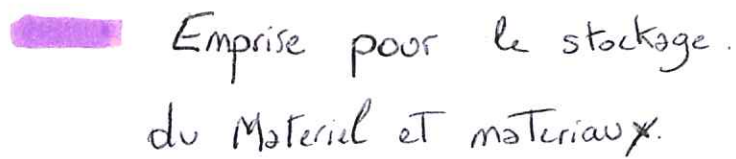 Emprise pour le stockage.
du Materiel et materiaux.